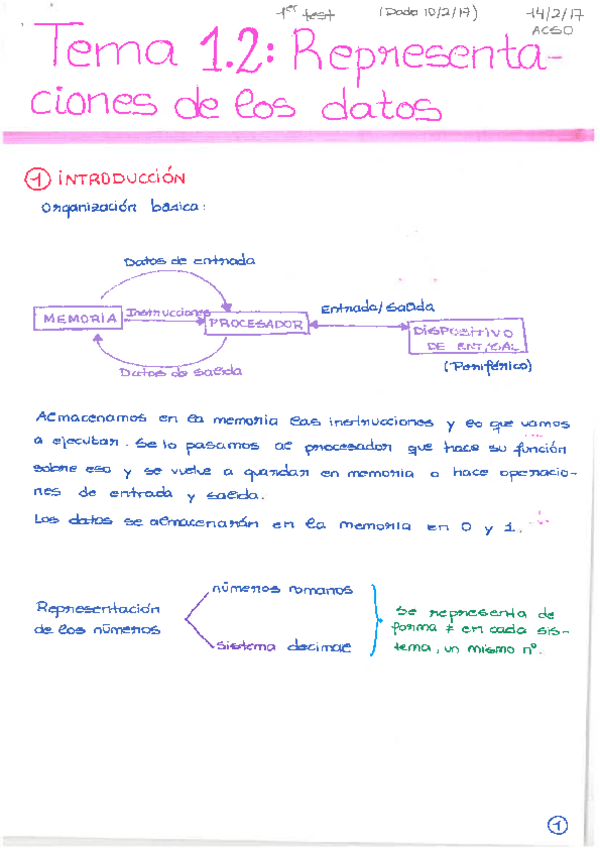 1er test (Dado 10/2/17) 14/2/17
ACSO
Tema 1.2: Representa-
ciones de los datos
1 INTRODUCCIÓN
Organización básica:
Datos de entrada
MEMORIA Instrucciones PROCESADOR Entrada/Salida DISPOSITIVO
DE ENT/SAL
Datos de salida (Periférico)
Almacenamos en la memoria las instrucciones y lo que vamos
a ejecutar. Se lo pasamos al procesador que hace su función
sobre eso y se vuelve a guardar en memoria o hace operacio-
nes de entrada y salida.
Los datos se almacenarán en la memoria en 0 y 1.
Representación
de los números
números romanos
sistema decimal
Se representa de
forma ≠ en cada sis-
tema, un mismo nº.
1